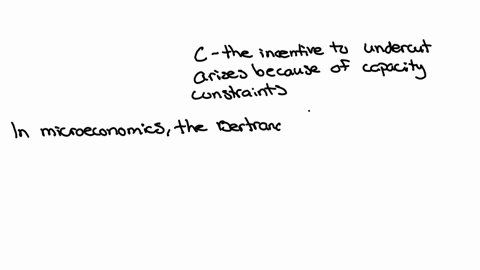 C - the incentive to undercut
arises because of capacity
constraints
In microeconomics, the Bertranc